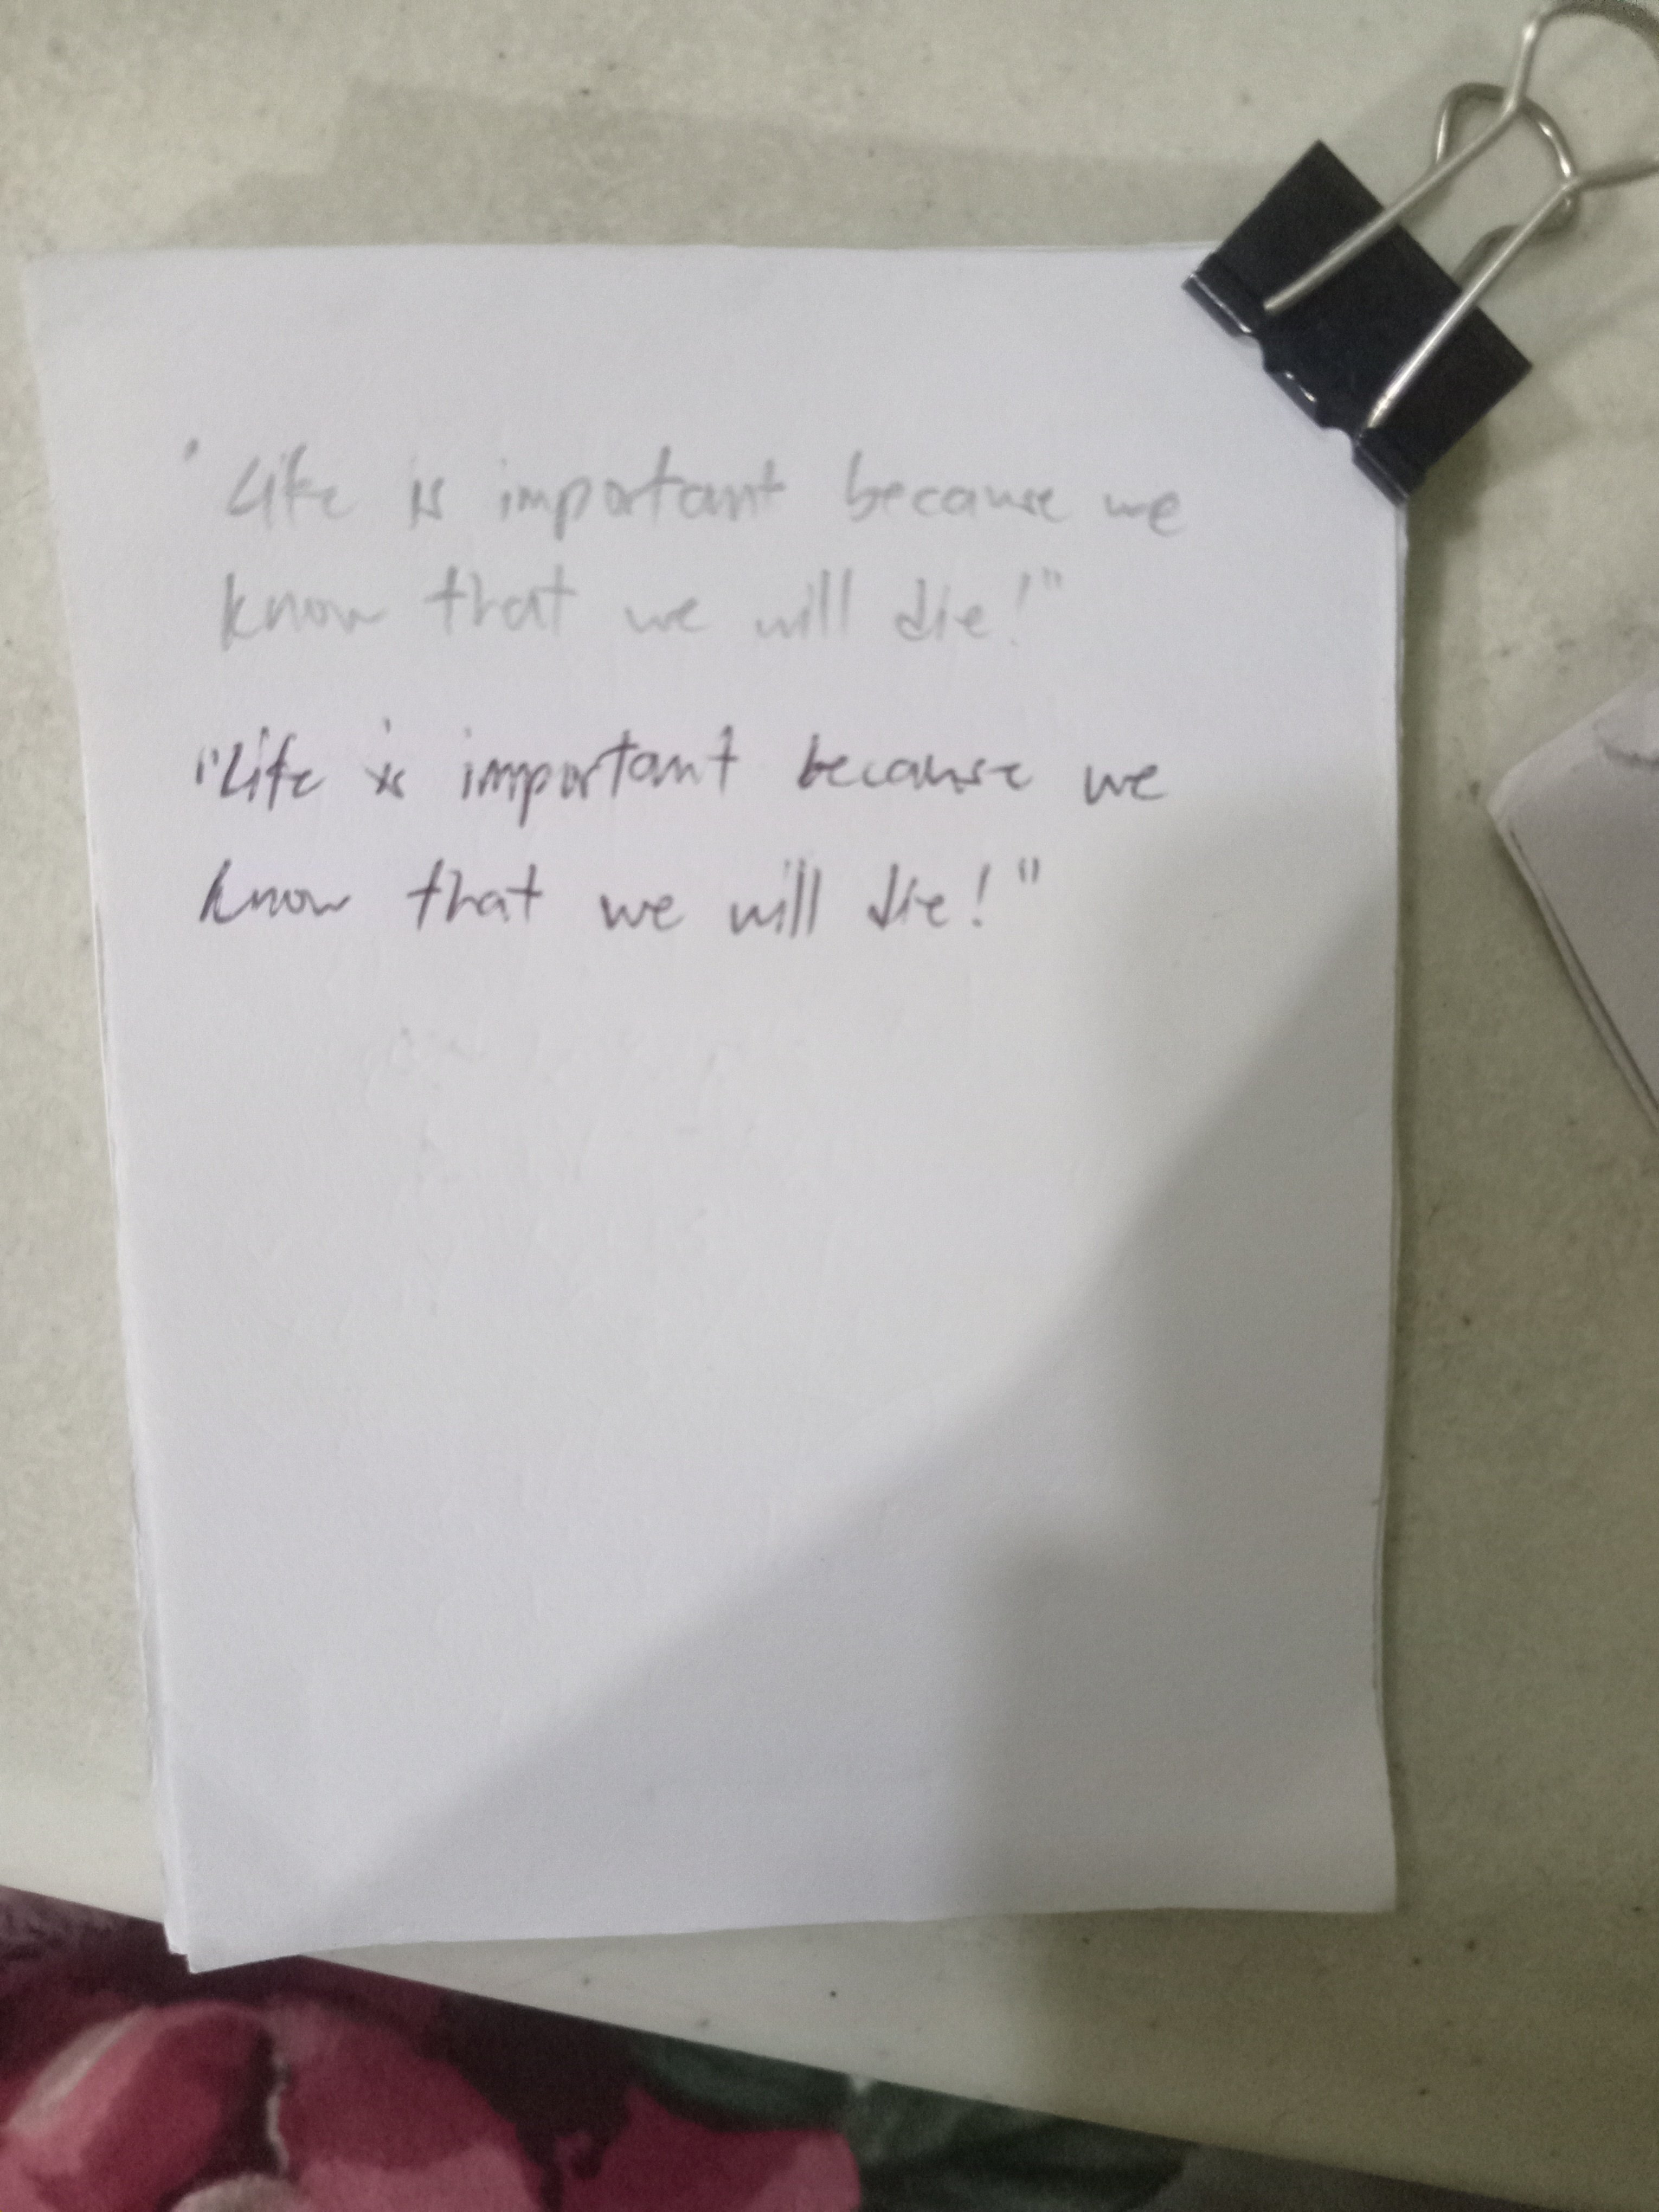 "Life is important because we
know that we will die!"
"Life is important because we
know that we will die!"